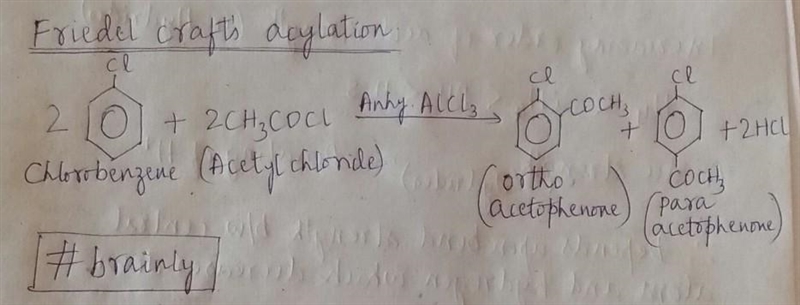 Friedel crafts acylation
Cl Cl Cl
2 + 2CH₃COCl Anhy. AlCl₃ COCH₃ + + 2HCl
Chlorobenzene (Acetyl chloride) (ortho acetophenone) COCH₃
(para acetophenone)
#brainly